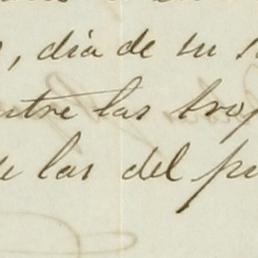 , día de su s
ntre las trop
e las del pu